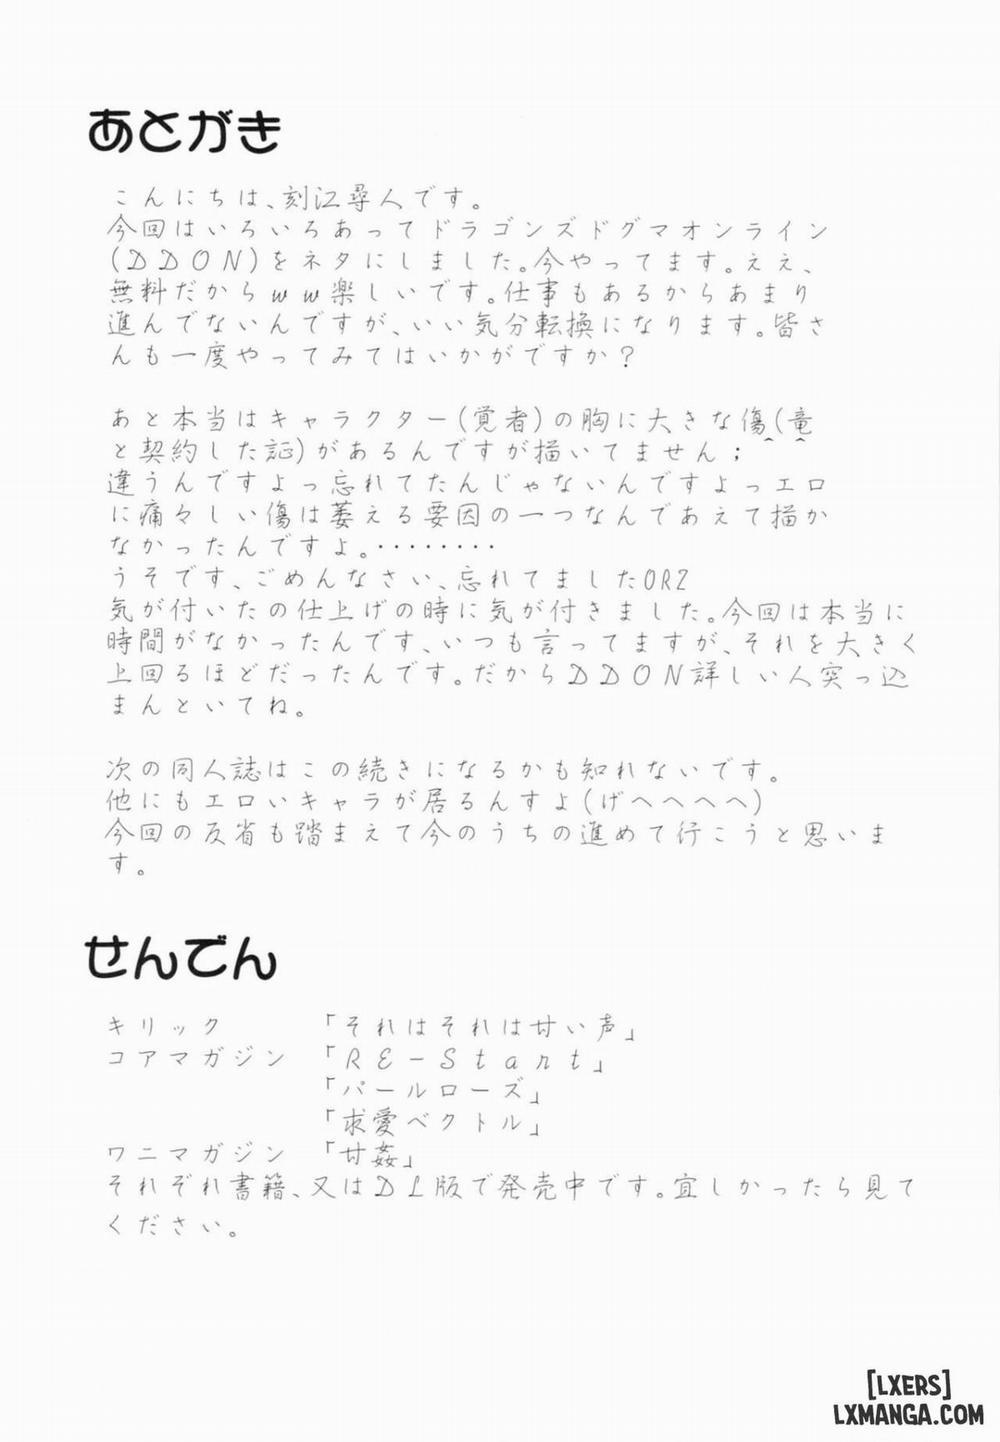 あとがき
こんにちは、刻江尋人です。
今回はいろいろあってドラゴンズドグマオンライン
(DDON)をネタにしました。今やってます。ええ、
無料だからww楽しいです。仕事もあるからあまり
進んでないんですが、いい気分転換になります。皆さ
んも一度やってみてはいかがですか?
あと本当はキャラクター(覚者)の胸に大きな傷(竜
と契約した証)があるんですが描いてません;^ ^
違うんですよっ忘れてたんじゃないんですよっエロ
に痛々しい傷は萎える要因の一つなんであえて描か
なかったんですよ。・・・・・・・・
うそです、ごめんなさい、忘れてましたORZ
気が付いたの仕上げの時に気が付きました。今回は本当に
時間がなかったんです、いつも言ってますが、それを大きく
上回るほどだったんです。だからDDON詳しい人突っ込
まんといてね。
次の同人誌はこの続きになるかも知れないです。
他にもエロいキャラが居るんすよ(げへへへへ)
今回の反省も踏まえて今のうちの進めて行こうと思いま
す。
せんでん
キリック 「それはそれは甘い声」
コアマガジン 「RE-Start」
「パールローズ」
「求愛ベクトル」
ワニマガジン 「甘姦」
それぞれ書籍、又はDL版で発売中です。宜しかったら見て
ください。
[LXERS]
LXMANGA.COM